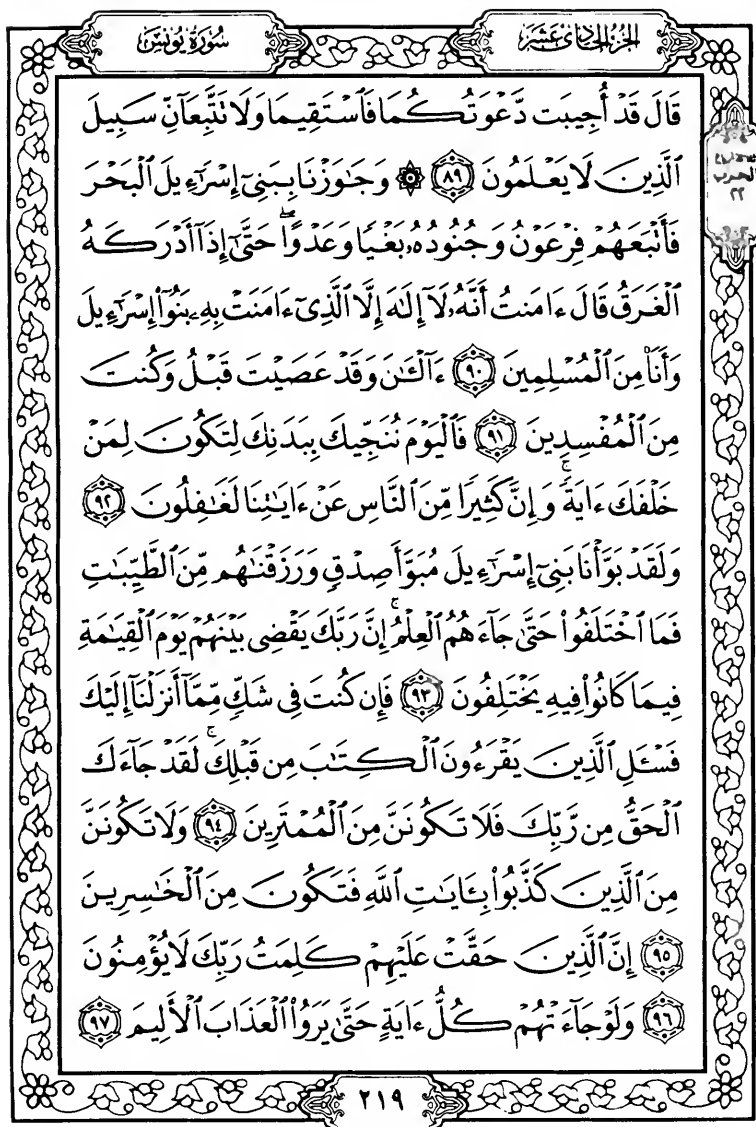 الجزء الحادي عشر
سورة يونس
قَالَ قَدْ أُجِيبَت دَّعْوَتُكُمَا فَٱسْتَقِيمَا وَلَا نَتَّبِعَآنِّ سَبِيلَ
ٱلَّذِينَ لَا يَعْلَمُونَ ٨٩ ۞ وَجَٰوَزْنَا بِبَنِىٓ إِسْرَٰٓءِيلَ ٱلْبَحْرَ
الحزب
٢٢
فَأَتْبَعَهُمْ فِرْعَوْنُ وَجُنُودُهُۥ بَغْيًا وَعَدْوًا ۖ حَتَّىٰٓ إِذَآ أَدْرَكَهُ
ٱلْغَرَقُ قَالَ ءَامَنتُ أَنَّهُۥ لَآ إِلَٰهَ إِلَّا ٱلَّذِىٓ ءَامَنَتْ بِهِۦ بَنُوٓا۟ إِسْرَٰٓءِيلَ
وَأَنَا۠ مِنَ ٱلْمُسْلِمِينَ ٩٠ ءَآلْـَٰٔنَ وَقَدْ عَصَيْتَ قَبْلُ وَكُنتَ
مِنَ ٱلْمُفْسِدِينَ ٩١ فَٱلْيَوْمَ نُنَجِّيكَ بِبَدَنِكَ لِتَكُونَ لِمَنْ
خَلْفَكَ ءَايَةً ۚ وَإِنَّ كَثِيرًا مِّنَ ٱلنَّاسِ عَنْ ءَايَٰتِنَا لَغَٰفِلُونَ ٩٢
وَلَقَدْ بَوَّأْنَا بَنِىٓ إِسْرَٰٓءِيلَ مُبَوَّأَ صِدْقٍ وَرَزَقْنَٰهُم مِّنَ ٱلطَّيِّبَٰتِ
فَمَا ٱخْتَلَفُوا۟ حَتَّىٰ جَآءَهُمُ ٱلْعِلْمُ ۚ إِنَّ رَبَّكَ يَقْضِى بَيْنَهُمْ يَوْمَ ٱلْقِيَٰمَةِ
فِيمَا كَانُوا۟ فِيهِ يَخْتَلِفُونَ ٩٣ فَإِن كُنتَ فِى شَكٍّ مِّمَّآ أَنزَلْنَآ إِلَيْكَ
فَسْـَٔلِ ٱلَّذِينَ يَقْرَءُونَ ٱلْكِتَٰبَ مِن قَبْلِكَ ۚ لَقَدْ جَآءَكَ
ٱلْحَقُّ مِن رَّبِّكَ فَلَا تَكُونَنَّ مِنَ ٱلْمُمْتَرِينَ ٩٤ وَلَا تَكُونَنَّ
مِنَ ٱلَّذِينَ كَذَّبُوا۟ بِـَٔايَٰتِ ٱللَّهِ فَتَكُونَ مِنَ ٱلْخَٰسِرِينَ
٩٥ إِنَّ ٱلَّذِينَ حَقَّتْ عَلَيْهِمْ كَلِمَتُ رَبِّكَ لَا يُؤْمِنُونَ
٩٦ وَلَوْ جَآءَتْهُمْ كُلُّ ءَايَةٍ حَتَّىٰ يَرَوُا۟ ٱلْعَذَابَ ٱلْأَلِيمَ ٩٧
٢١٩